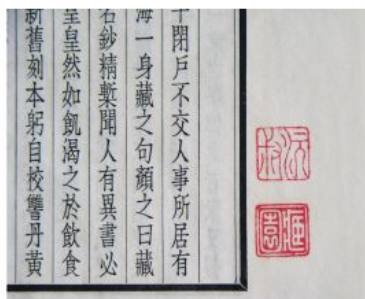 閉戶不交人事所居有
海一身藏之句顏之曰藏
石鈔精槧聞人有異書必
皇皇然如飢渴之於飲食
新舊刻本躬自校讐丹黃